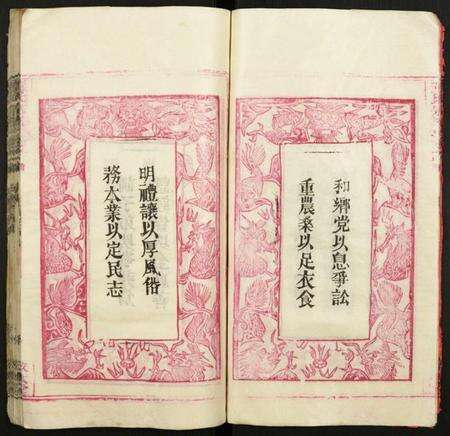 和鄉党以息爭訟
重農桑以足衣食
明禮讓以厚風俗
務本業以定民志